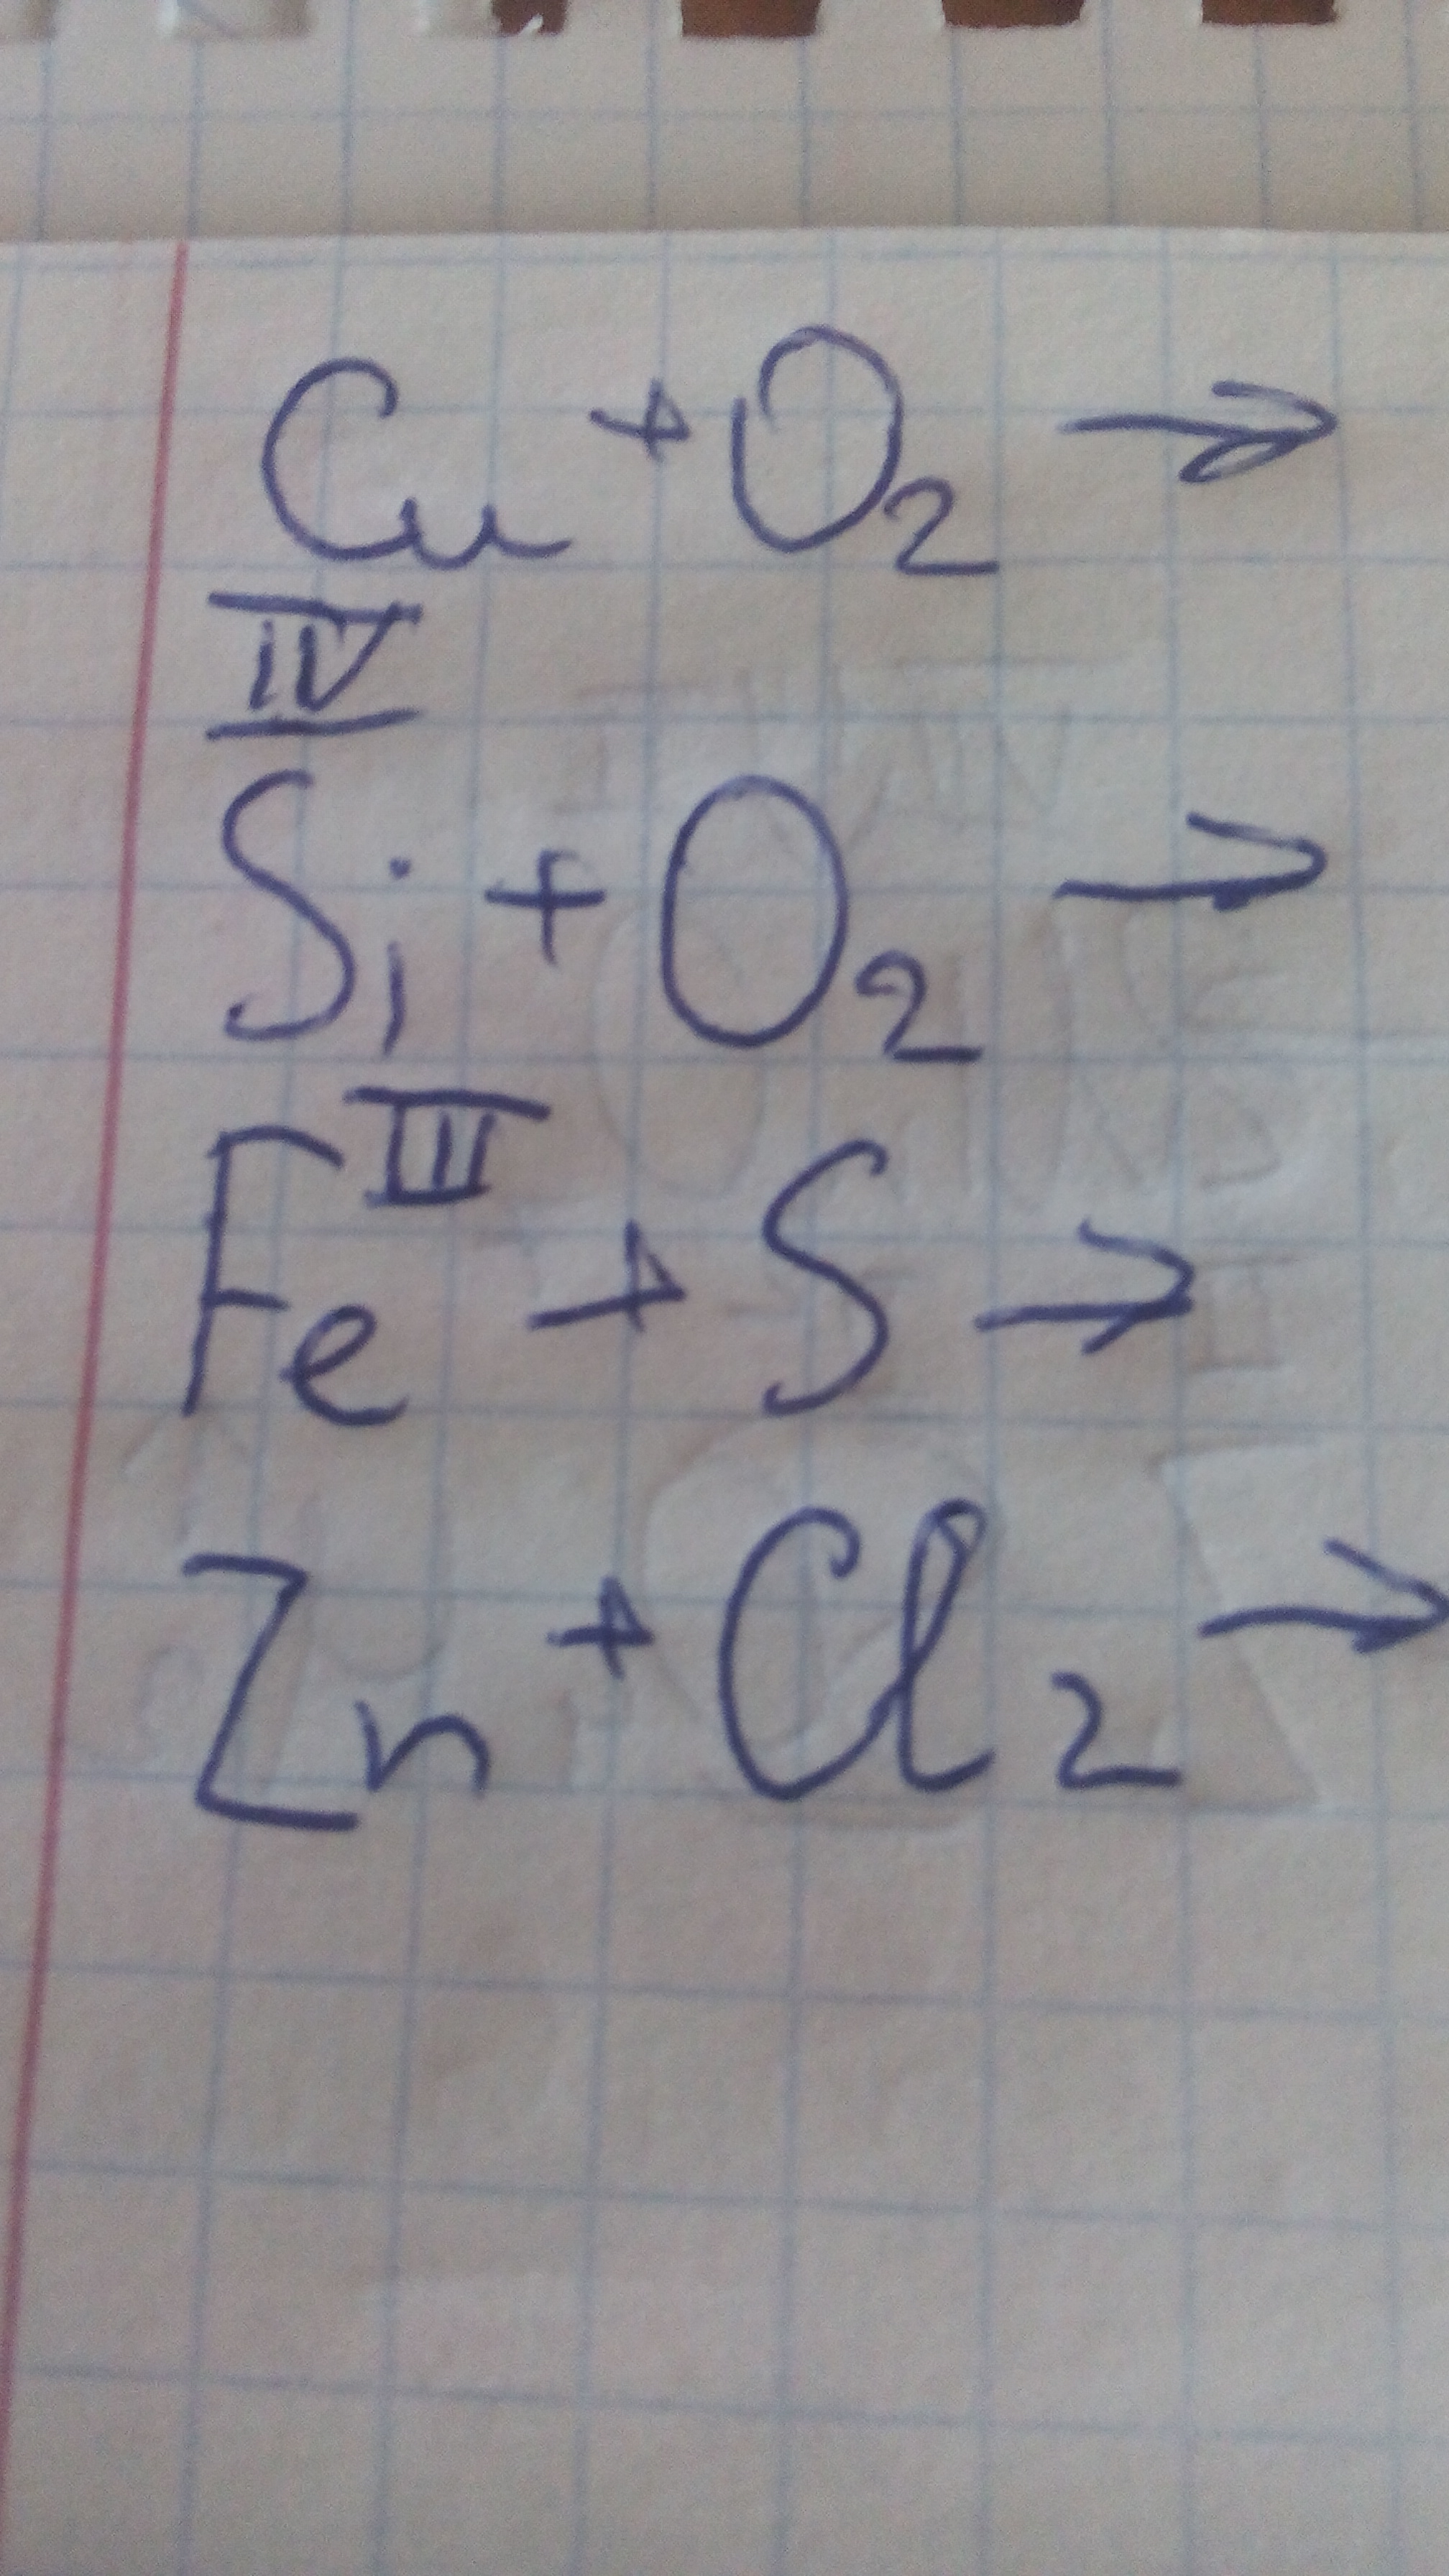 Cu + O₂ →
IV
Si + O₂ →
III
Fe + S →
Zn + Cl₂ →